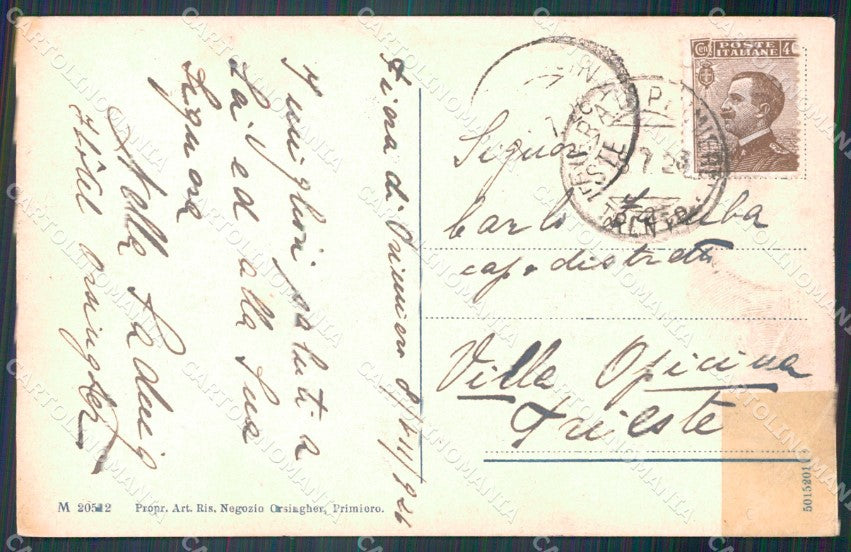 Fiera di Primiero 8/VII/926
I migliori saluti a
Lei ed alla Sua
Signora
Stella Ladwig
Hôtel Orsingher
M 20512
Propr. Art. Ris. Negozio Orsingher, Primiero.
POSTE
ITALIANE
Cen. 40
Signor
Carlo
cap. distrett
Villa Opicina
Trieste
5015201
CARTOLINOMANIA